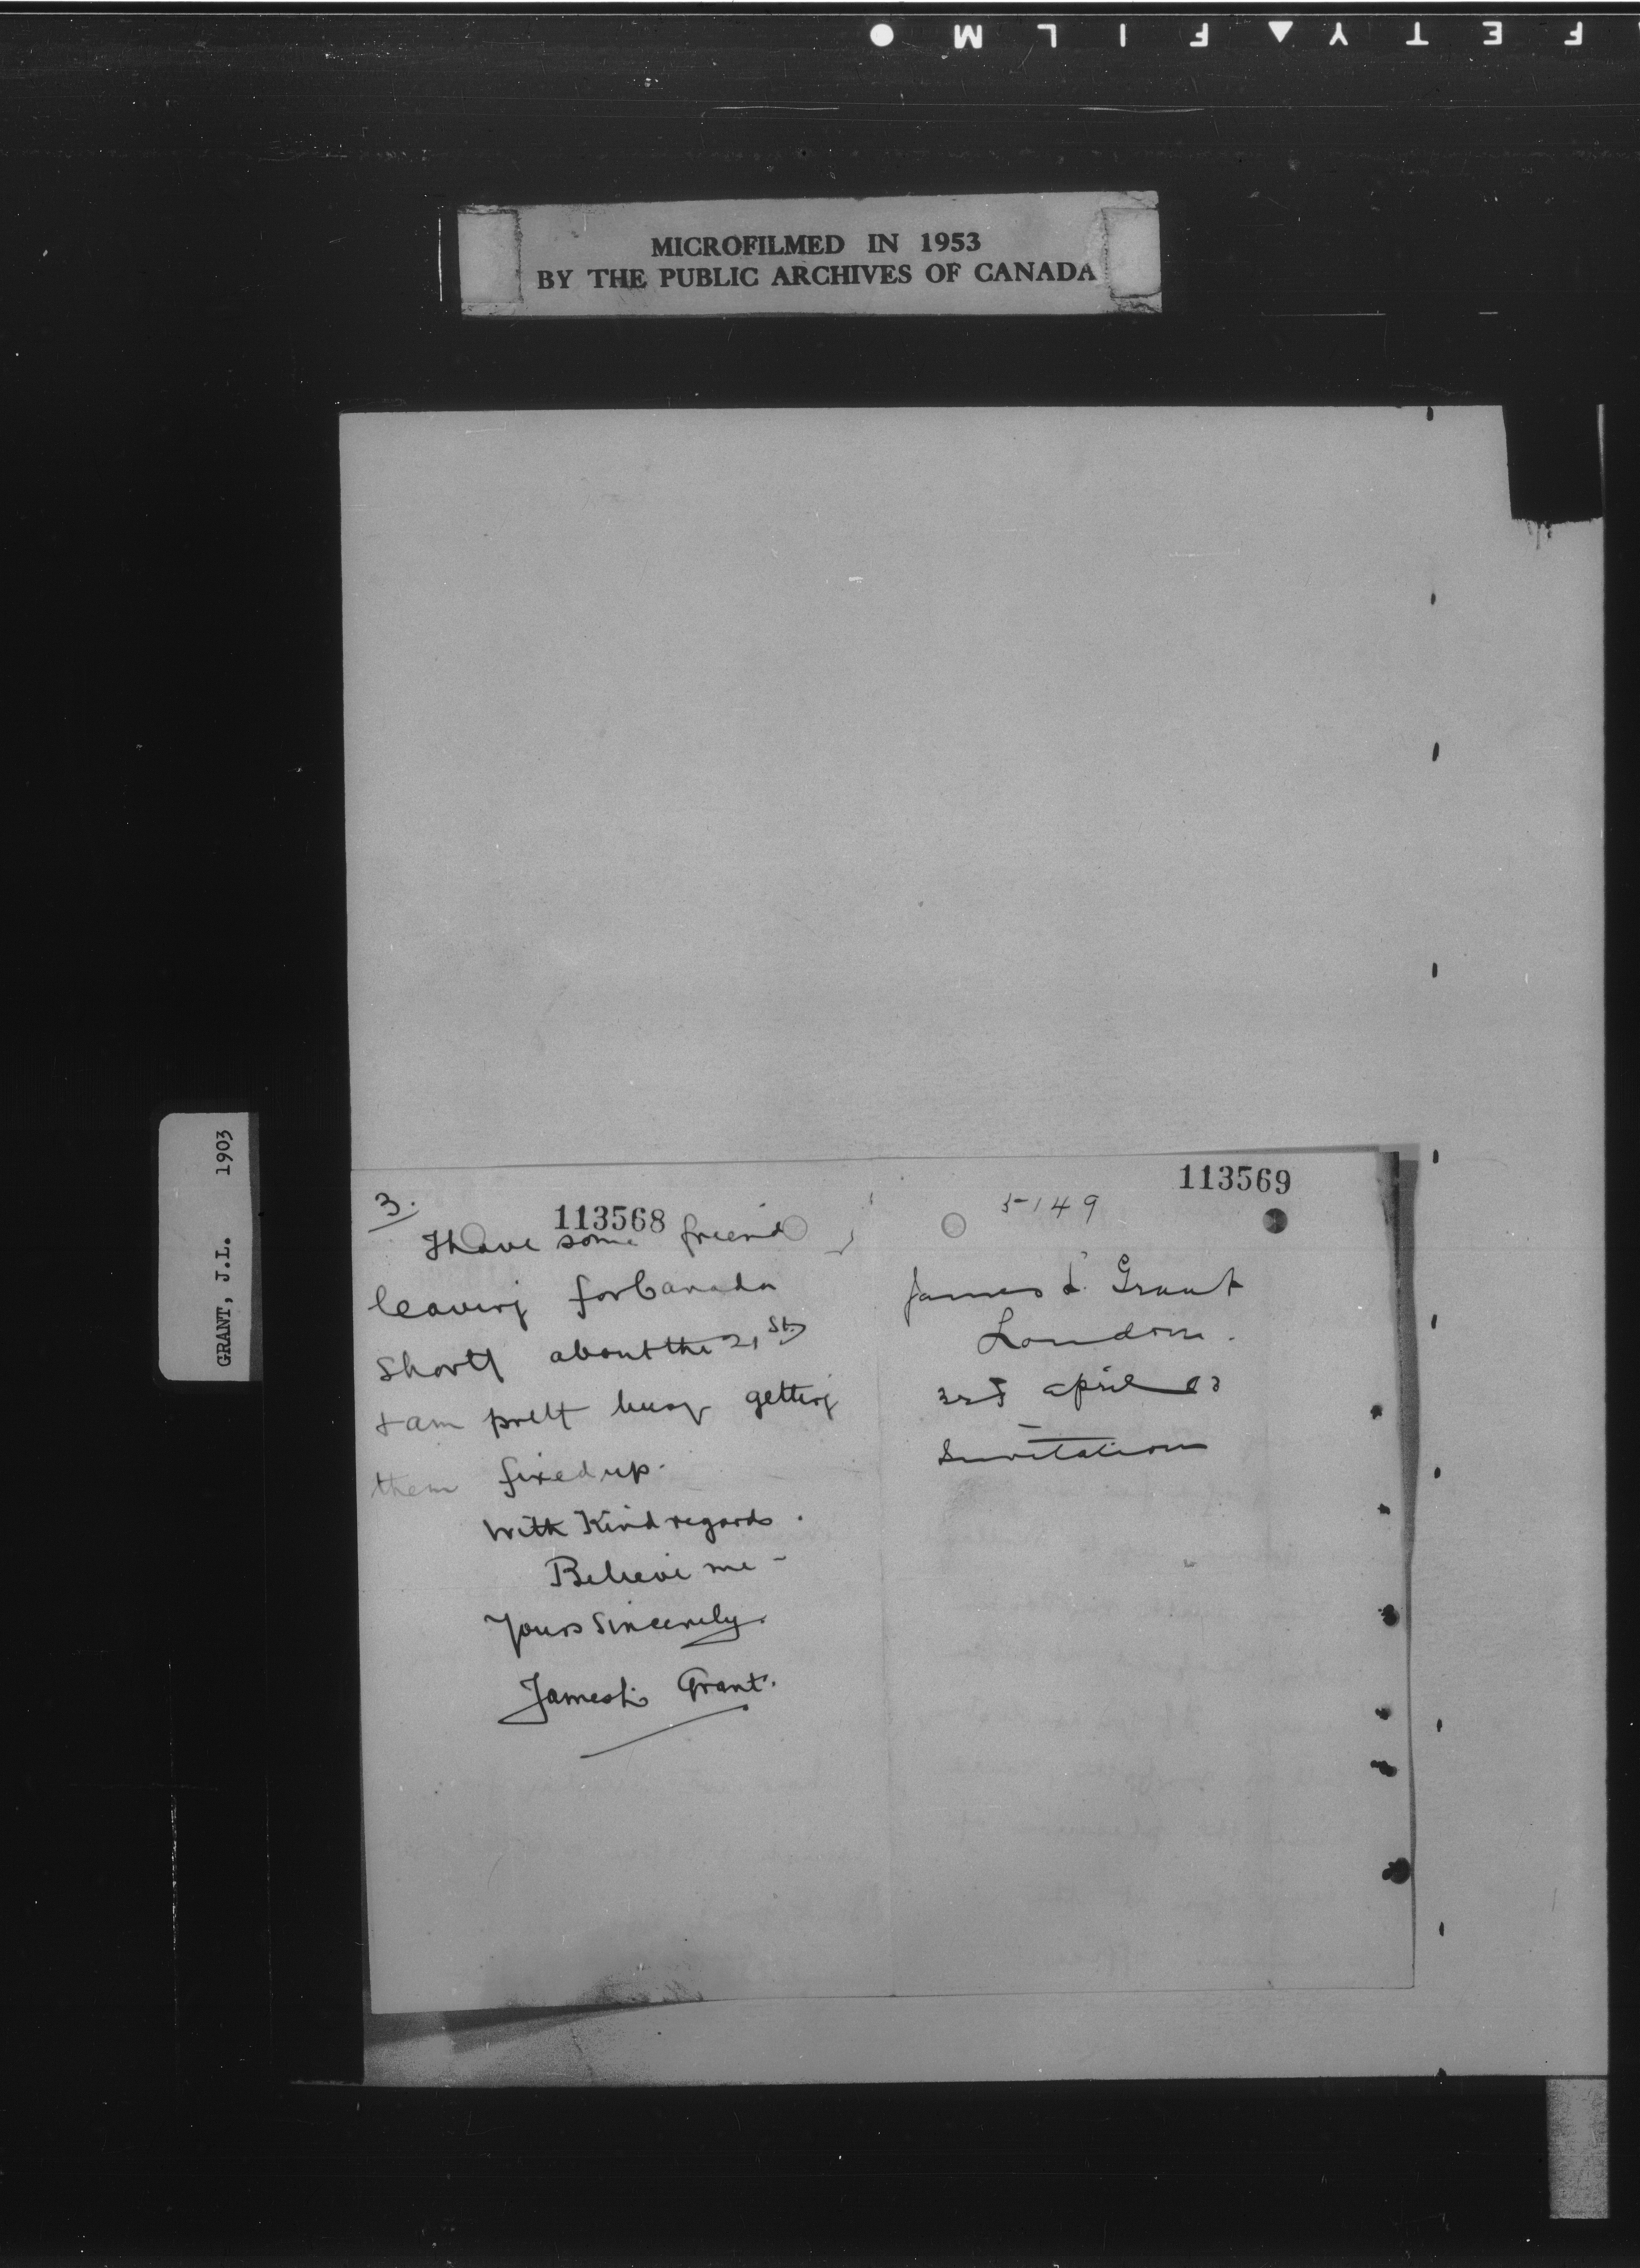 F E T Y ▲ F I L M ●
MICROFILMED IN 1953
BY THE PUBLIC ARCHIVES OF CANADA
GRANT, J.L. 1903
3.
113568
I have some friend
leaving for Canada
shortl about the 21st
+ am prett busy getting
them fixed up.
With Kind regards.
Believe me -
Yours Sincerely.
James L. Grant.
113569
5149
James L. Grant
London.
April 03
Invitation